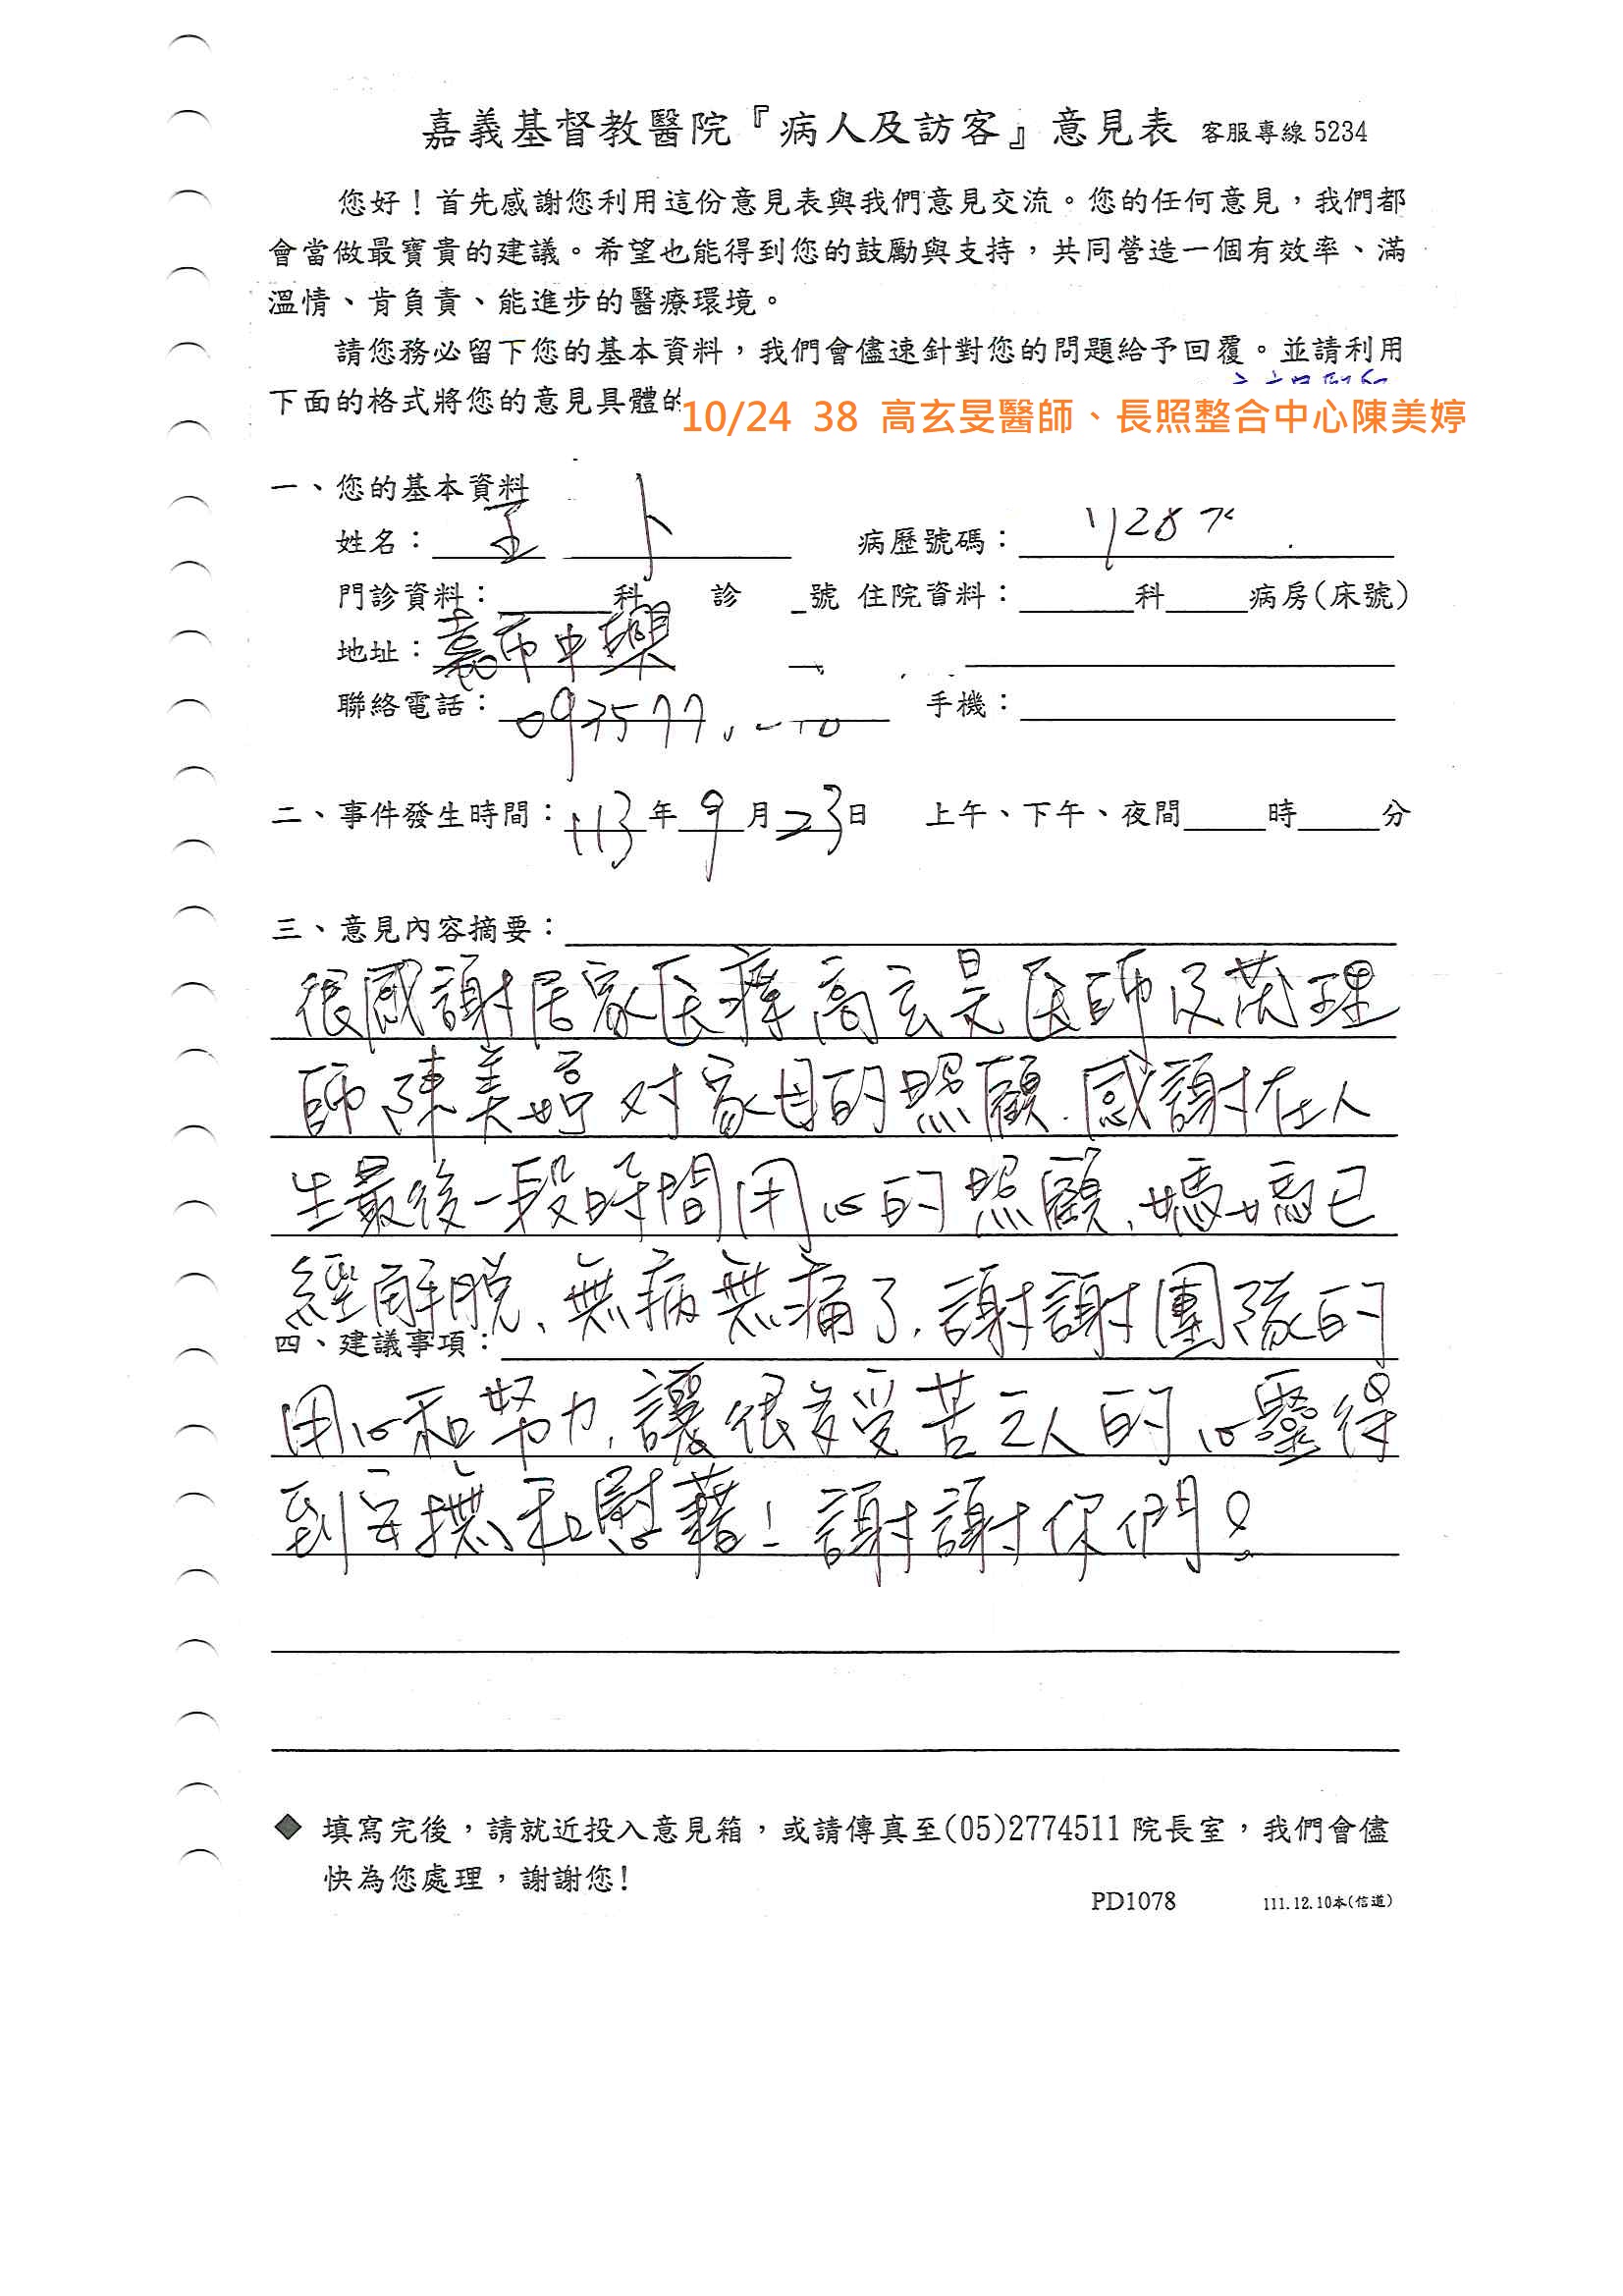 嘉義基督教醫院『病人及訪客』意見表 客服專線 5234
您好！首先感謝您利用這份意見表與我們意見交流。您的任何意見，我們都
會當做最寶貴的建議。希望也能得到您的鼓勵與支持，共同營造一個有效率、滿
溫情、肯負責、能進步的醫療環境。
請您務必留下您的基本資料，我們會儘速針對您的問題給予回覆。並請利用
下面的格式將您的意見具體的
10/24 38 高玄旻醫師、長照整合中心陳美婷
一、您的基本資料
姓名： 病歷號碼：
門診資料： 科 診 號 住院資料： 科 病房(床號)
地址：嘉市中興
聯絡電話： 手機：
二、事件發生時間：113年9月23日 上午、下午、夜間 時 分
三、意見內容摘要：
很感謝居家医療高玄旻医師及萖理
師陳美婷对家母的照顧.感謝在人
生最後一段時間用心的照顧、媽媽已
經解脫、無病無痛了,謝謝團隊的
四、建議事項：
用心和努力,讓很多受苦之人的心靈得
到安撫和慰藉!謝謝你們!
◆ 填寫完後，請就近投入意見箱，或請傳真至(05)2774511 院長室，我們會儘
快為您處理，謝謝您!
PD1078 111.12.10本(信道)